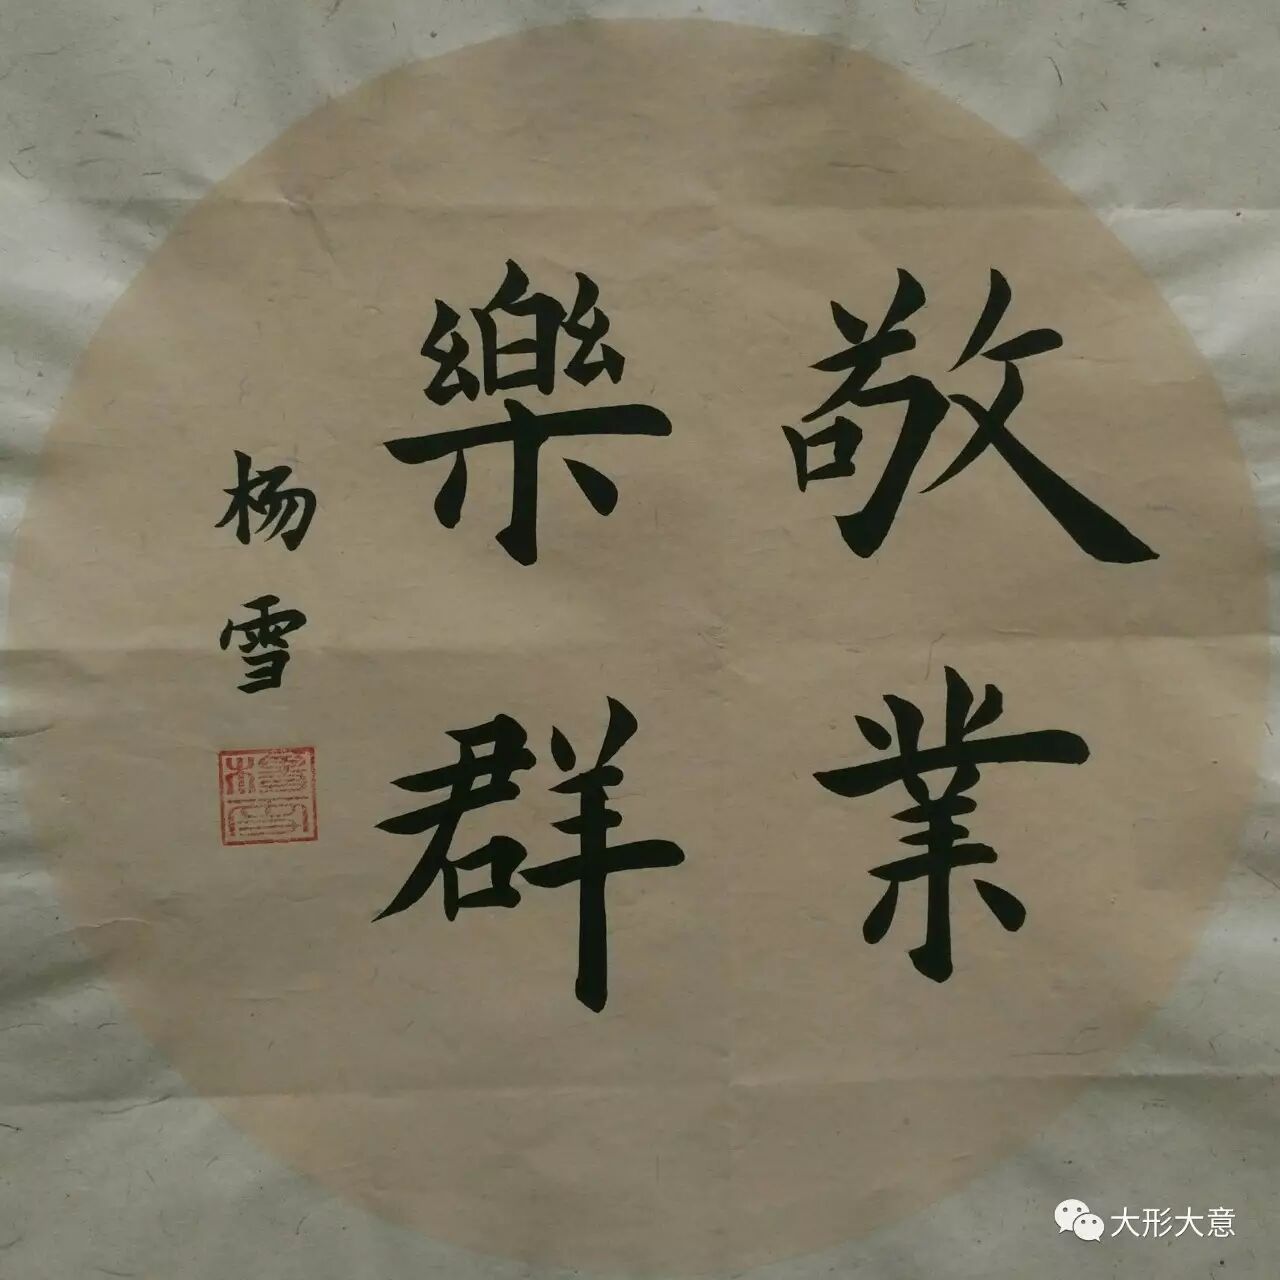 敬業
樂群
杨雪
楊雪
大形大意